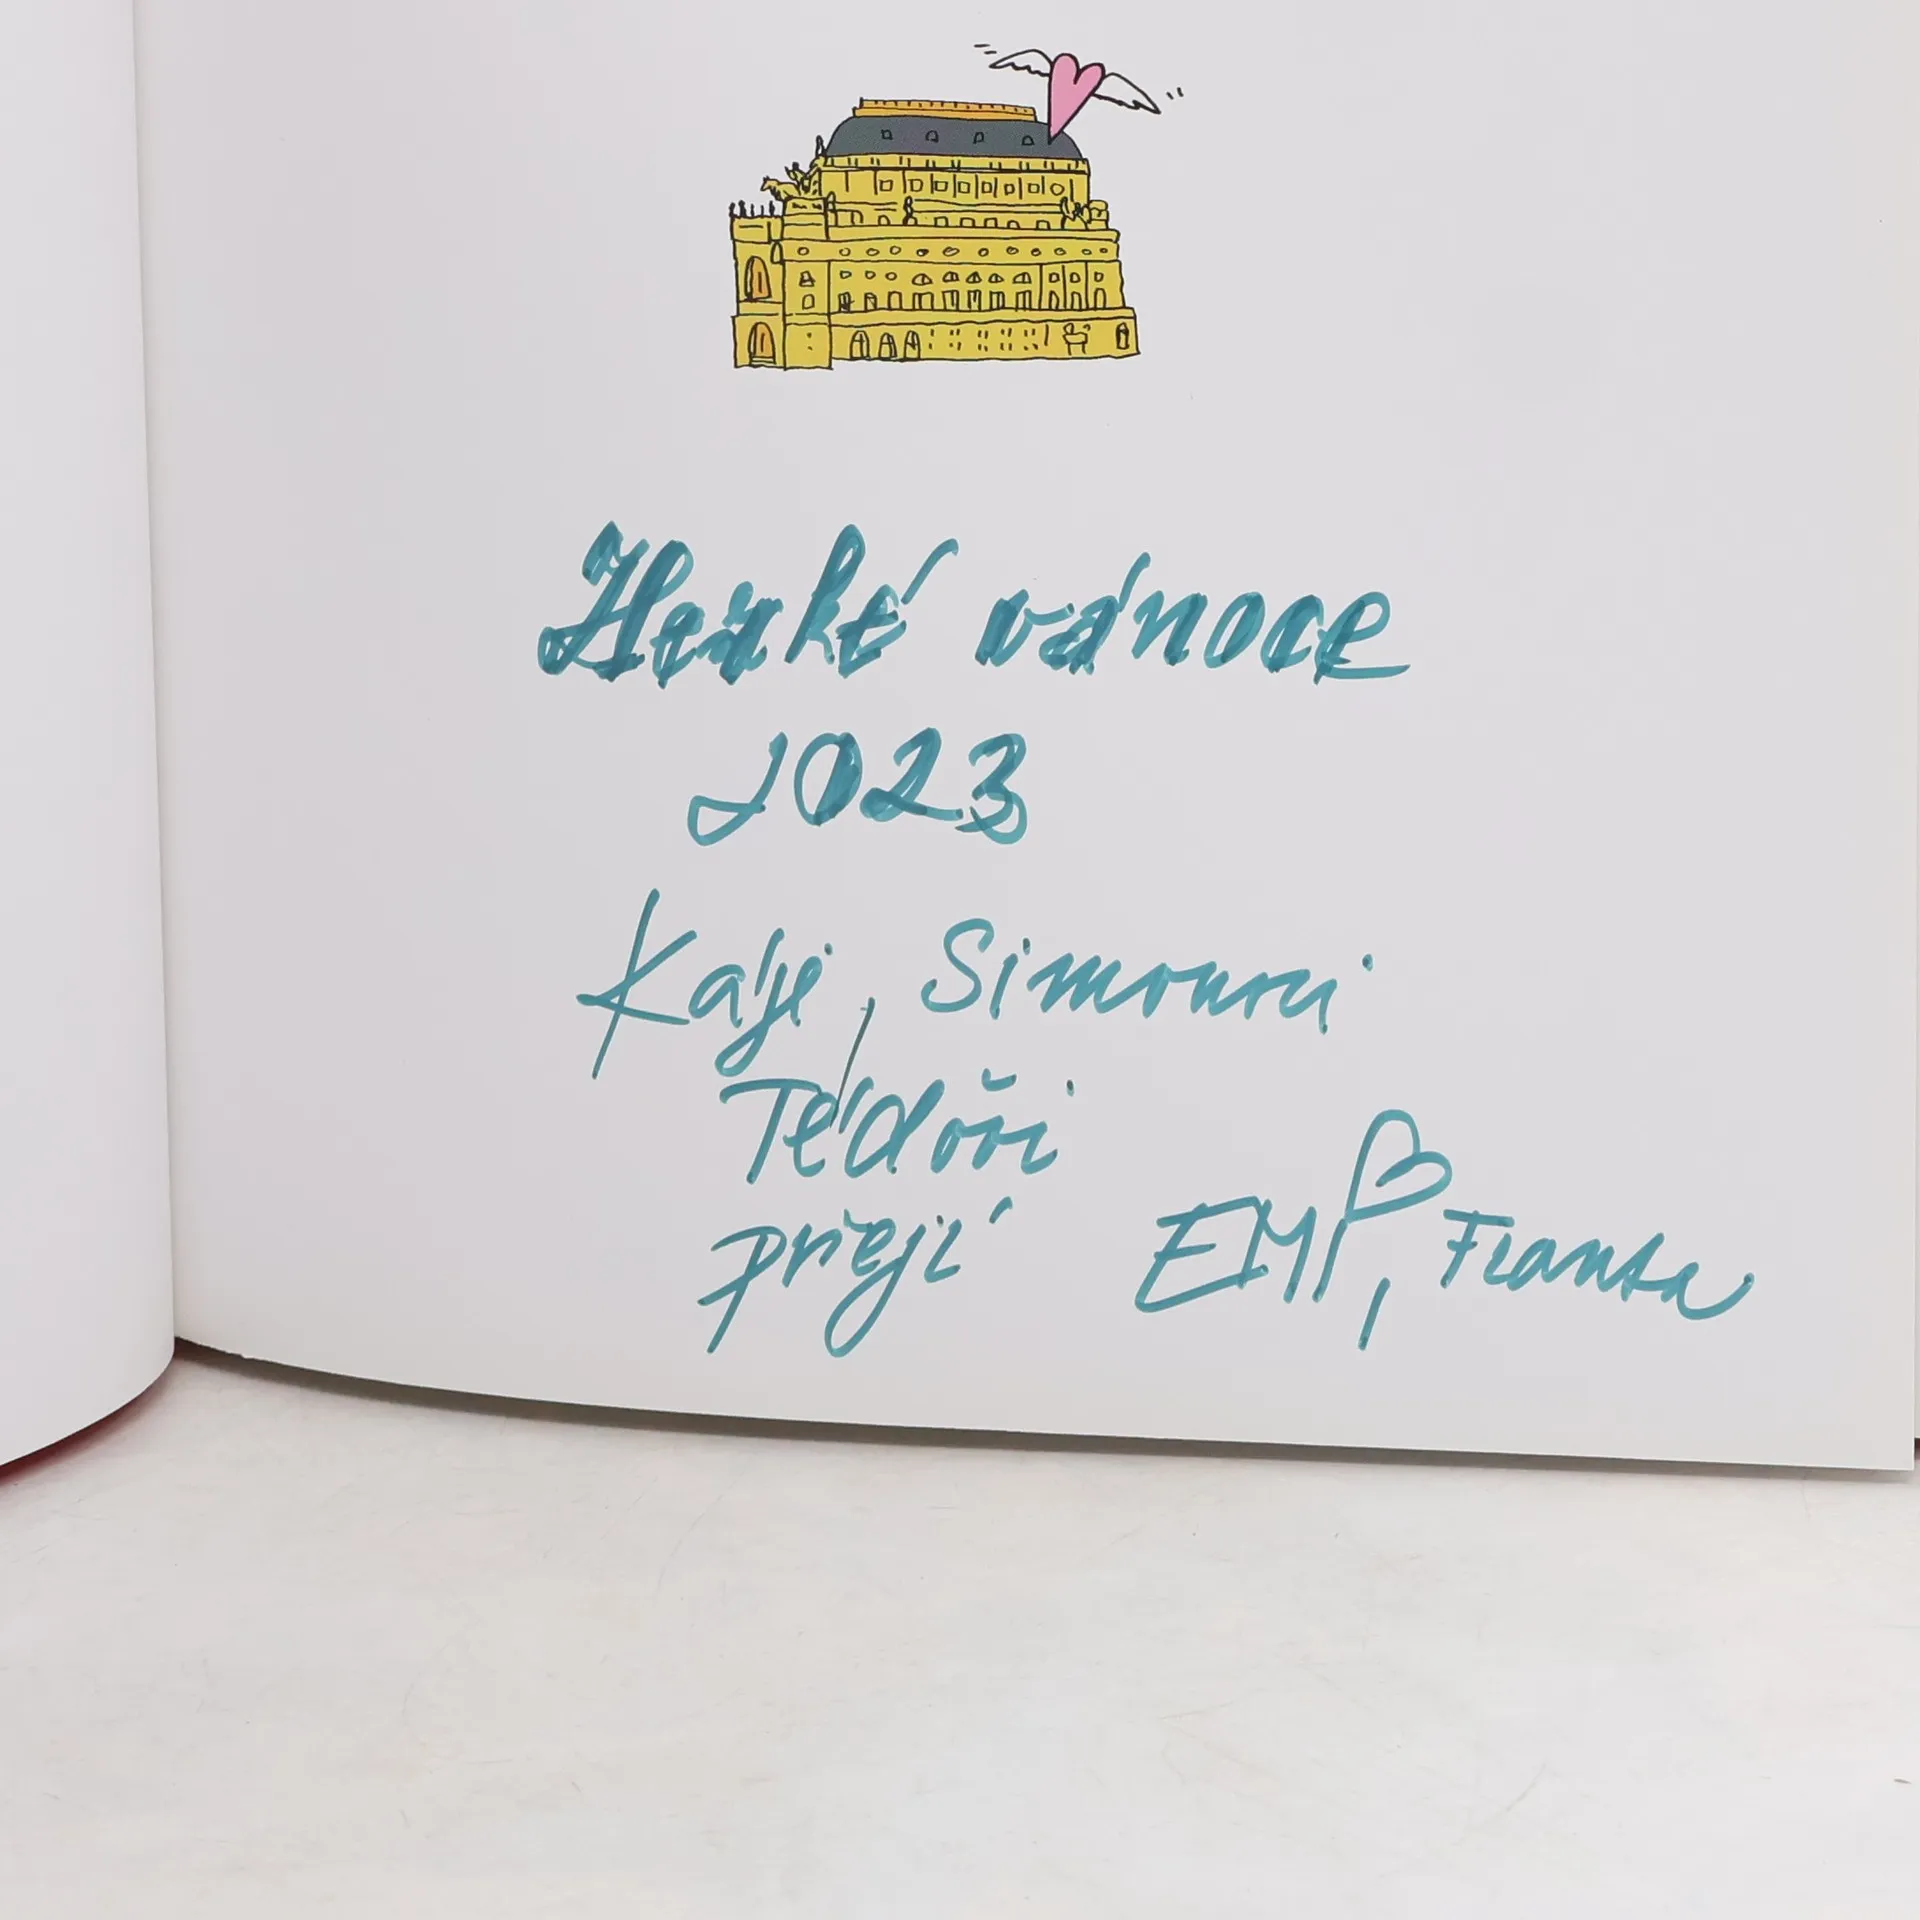 Hezké vánoce
2023
Káje, Simonovi
Tédovi
přejí EMI, Franta